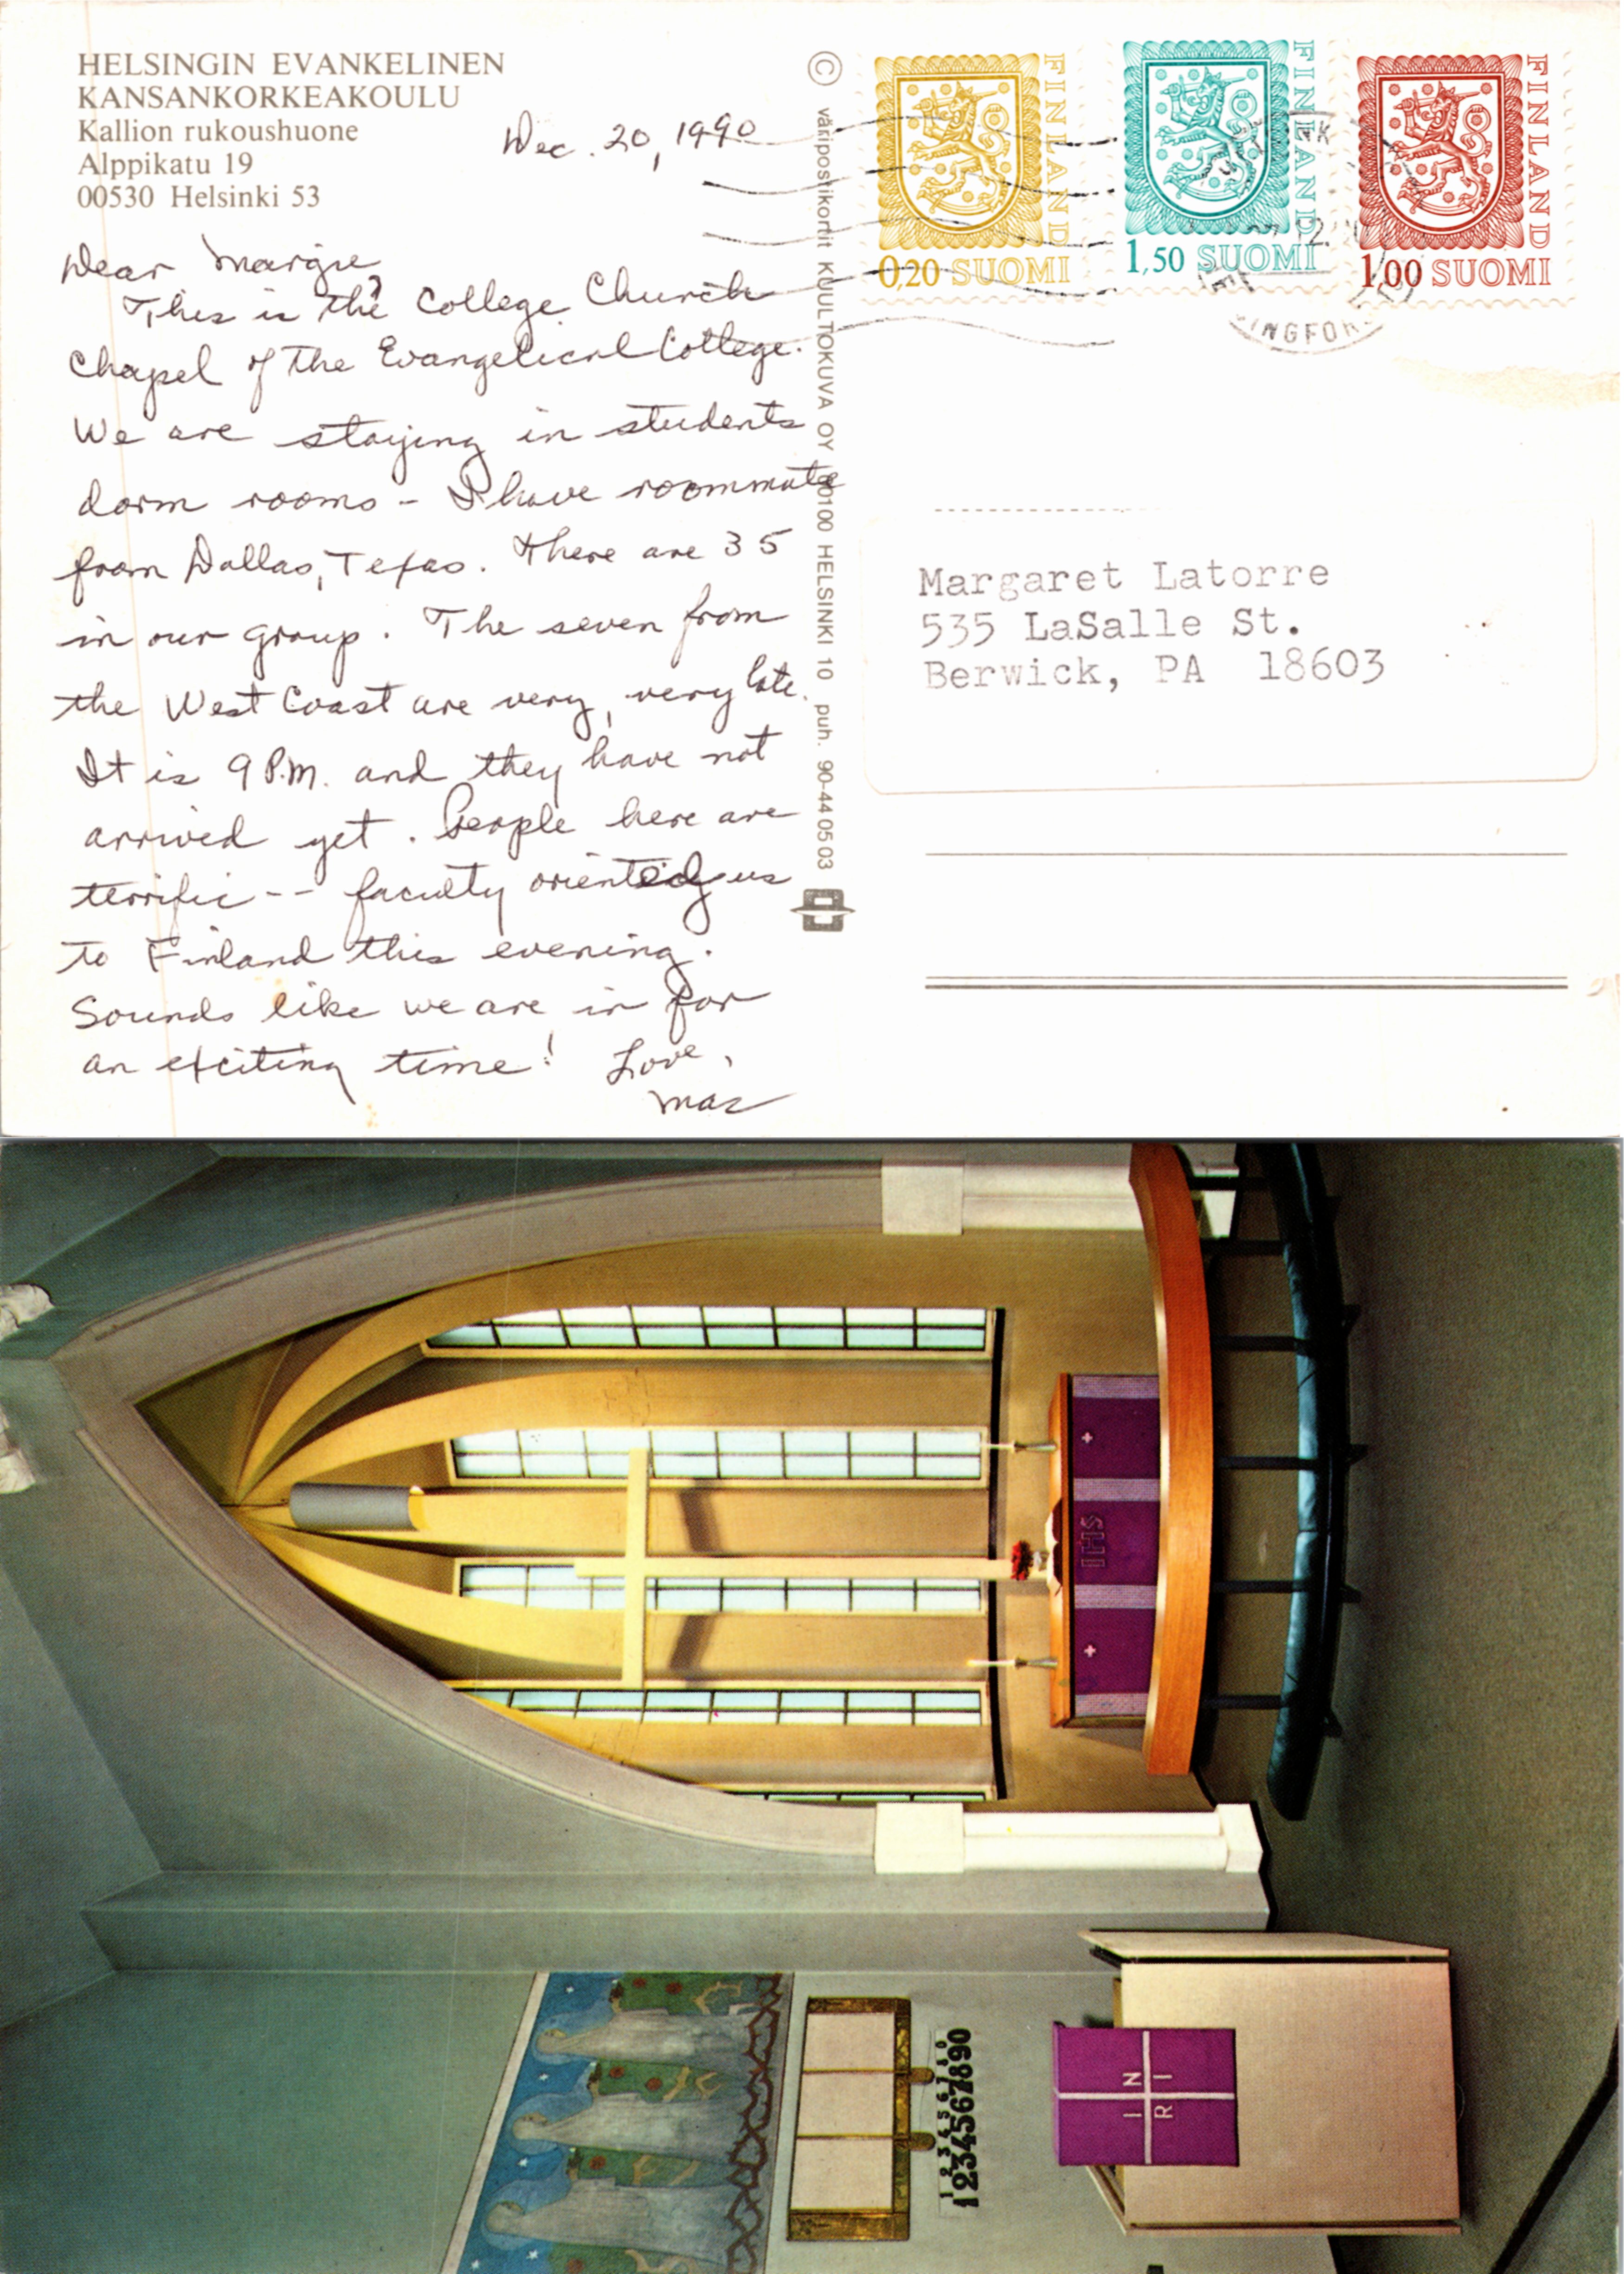 HELSINGIN EVANKELINEN
KANSANKORKEAKOULU
Kallion rukoushuone
Alppikatu 19
00530 Helsinki 53
Dec. 20, 1990
Dear Margie,
This is the College Church
Chapel of the Evangelical College.
We are staying in students
dorm rooms - I have roommate
from Dallas, Texas. There are 35
in our group. The seven from
the West Coast are very, very late.
It is 9 P.M. and they have not
arrived yet. People here are
terrific -- faculty oriented us
to Finland this evening.
Sounds like we are in for
an exciting time! Love,
© väripostikortit KUULTOKUVA OY 00100 HELSINKI 10 puh. 90-44 05 03
FINLAND
0,20 SUOMI
FINLAND
1,50 SUOMI
FINLAND
1,00 SUOMI
Margaret Latorre
535 LaSalle St.
Berwick, PA 18603
IHS
I N
R I
1 2 3 4 5 6 7 8 9 0
1234567890